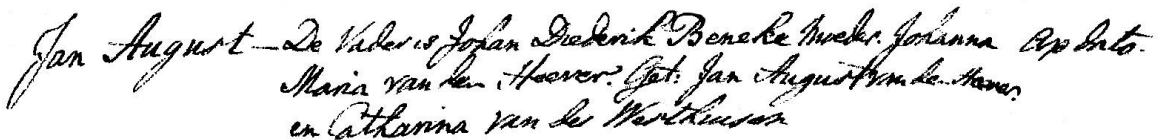 Jan August — De Vader is Johan Diederik Beneke Moeder. Johanna op dato.
Maria van den Heever. Get: Jan August van den Heever.
en Catharina van der Westhuisen